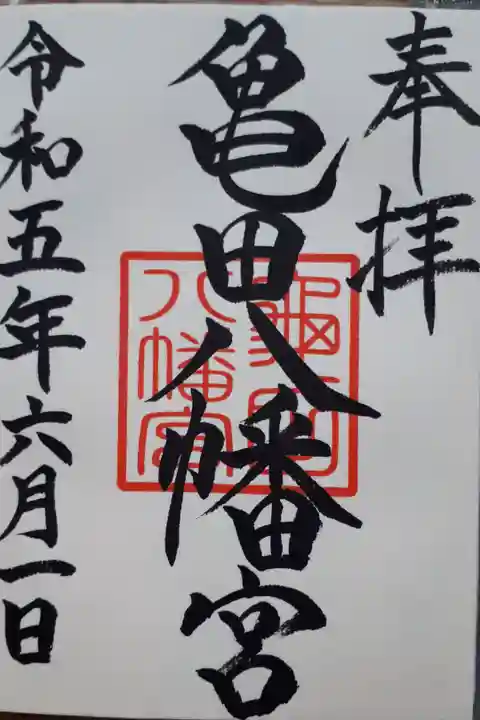 奉拝
亀田八幡宮
龜田
八幡宮
令和五年六月一日